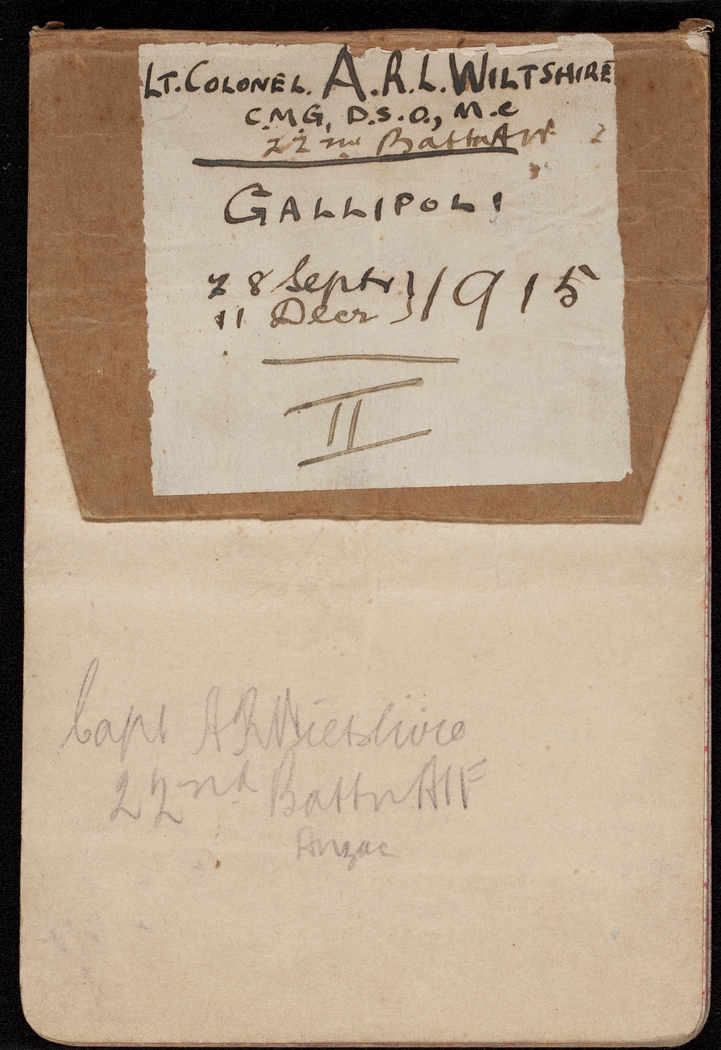 LT. COLONEL. A.R.L. WILTSHIRE
C.M.G, D.S.O., M.C
22nd Battn AIF
GALLIPOLI
28 Septr } 1915
11 Decr }
II
Capt A R Wiltshire
22nd Battn AIF
Anzac